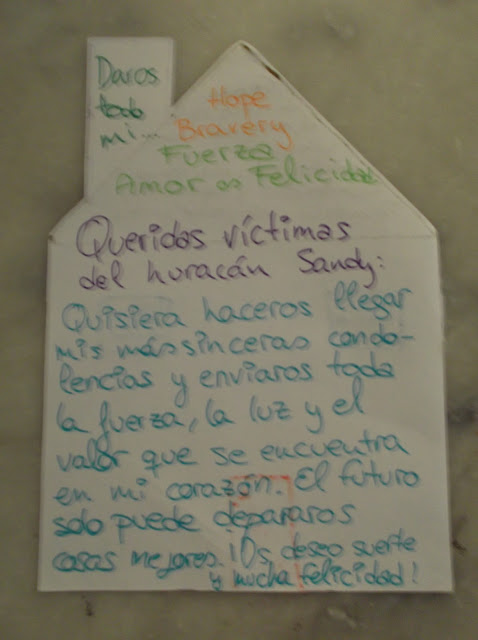 Daros
todo
mi...
Hope
Bravery
Fuerza
Amor Felicidad
Queridas víctimas
del huracán Sandy:
Quisiera haceros llegar
mis más sinceras condo-
lencias y enviaros toda
la fuerza, la luz y el
valor que se encuentra
en mi corazón. El futuro
solo puede depararos
cosas mejores. ¡Os deseo suerte
y mucha felicidad!